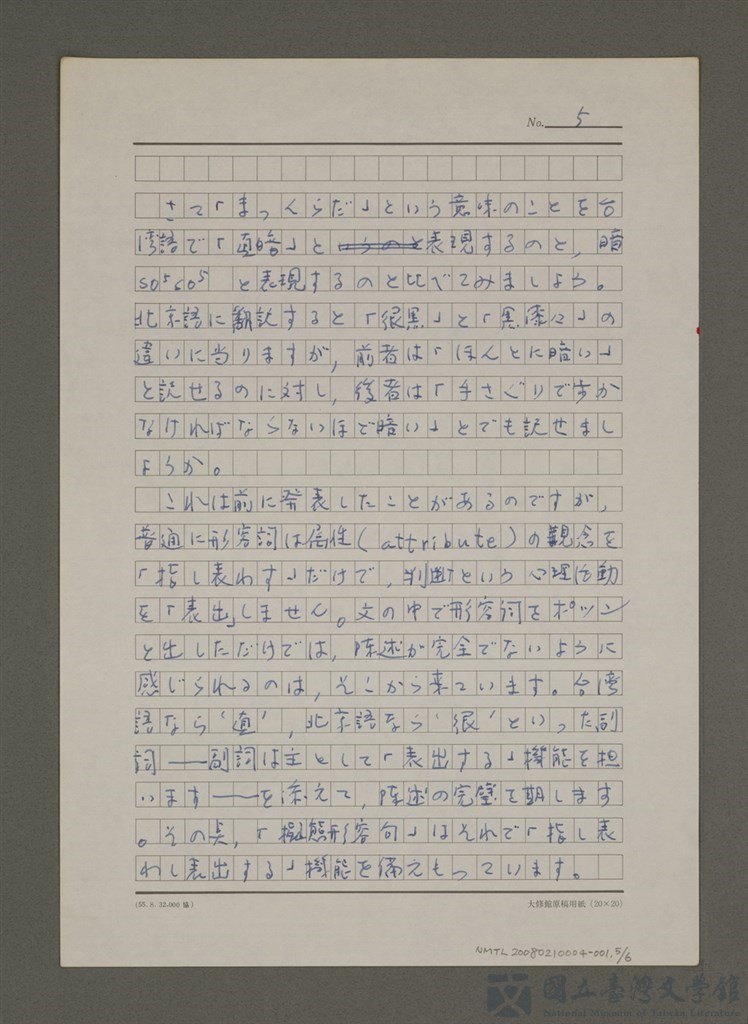 No. 5
さて「まっくらだ」という意味のことを台
湾語で「直暗」と表現するのと，暗
so⁵so⁵ と表現するのと比べてみましょう。
北京語に翻訳すると「很黒」と「黒漆々」の
違いに当りますが，前者は「ほんとに暗い」
と訳せるのに対し，後者は「手さぐりですか
なければならないほど暗い」とでも訳せまし
ょうか。
これは前に発表したことがあるのですが，
普通に形容詞は属性(attribute)の観念を
「指し表わす」だけで，判断という心理活動
を「表出」しません。文の中で形容詞をポツン
と出しただけでは，陳述が完全でないように
感じられるのは，そこから来ています。台湾
語なら‘直’，北京語なら‘很’といった副
詞──副詞は主として「表出する」機能を担
います──を添えて，陳述の完璧を期します
。その点，「擬態形容句」はそれで「指し表
わし表出する」機能を備えもっています。
(55. 8. 32.000 協)
大修館原稿用紙 (20×20)
NMTL 20080210004-001, 5/6
國立臺灣文學館
National Museum of Taiwan Literature